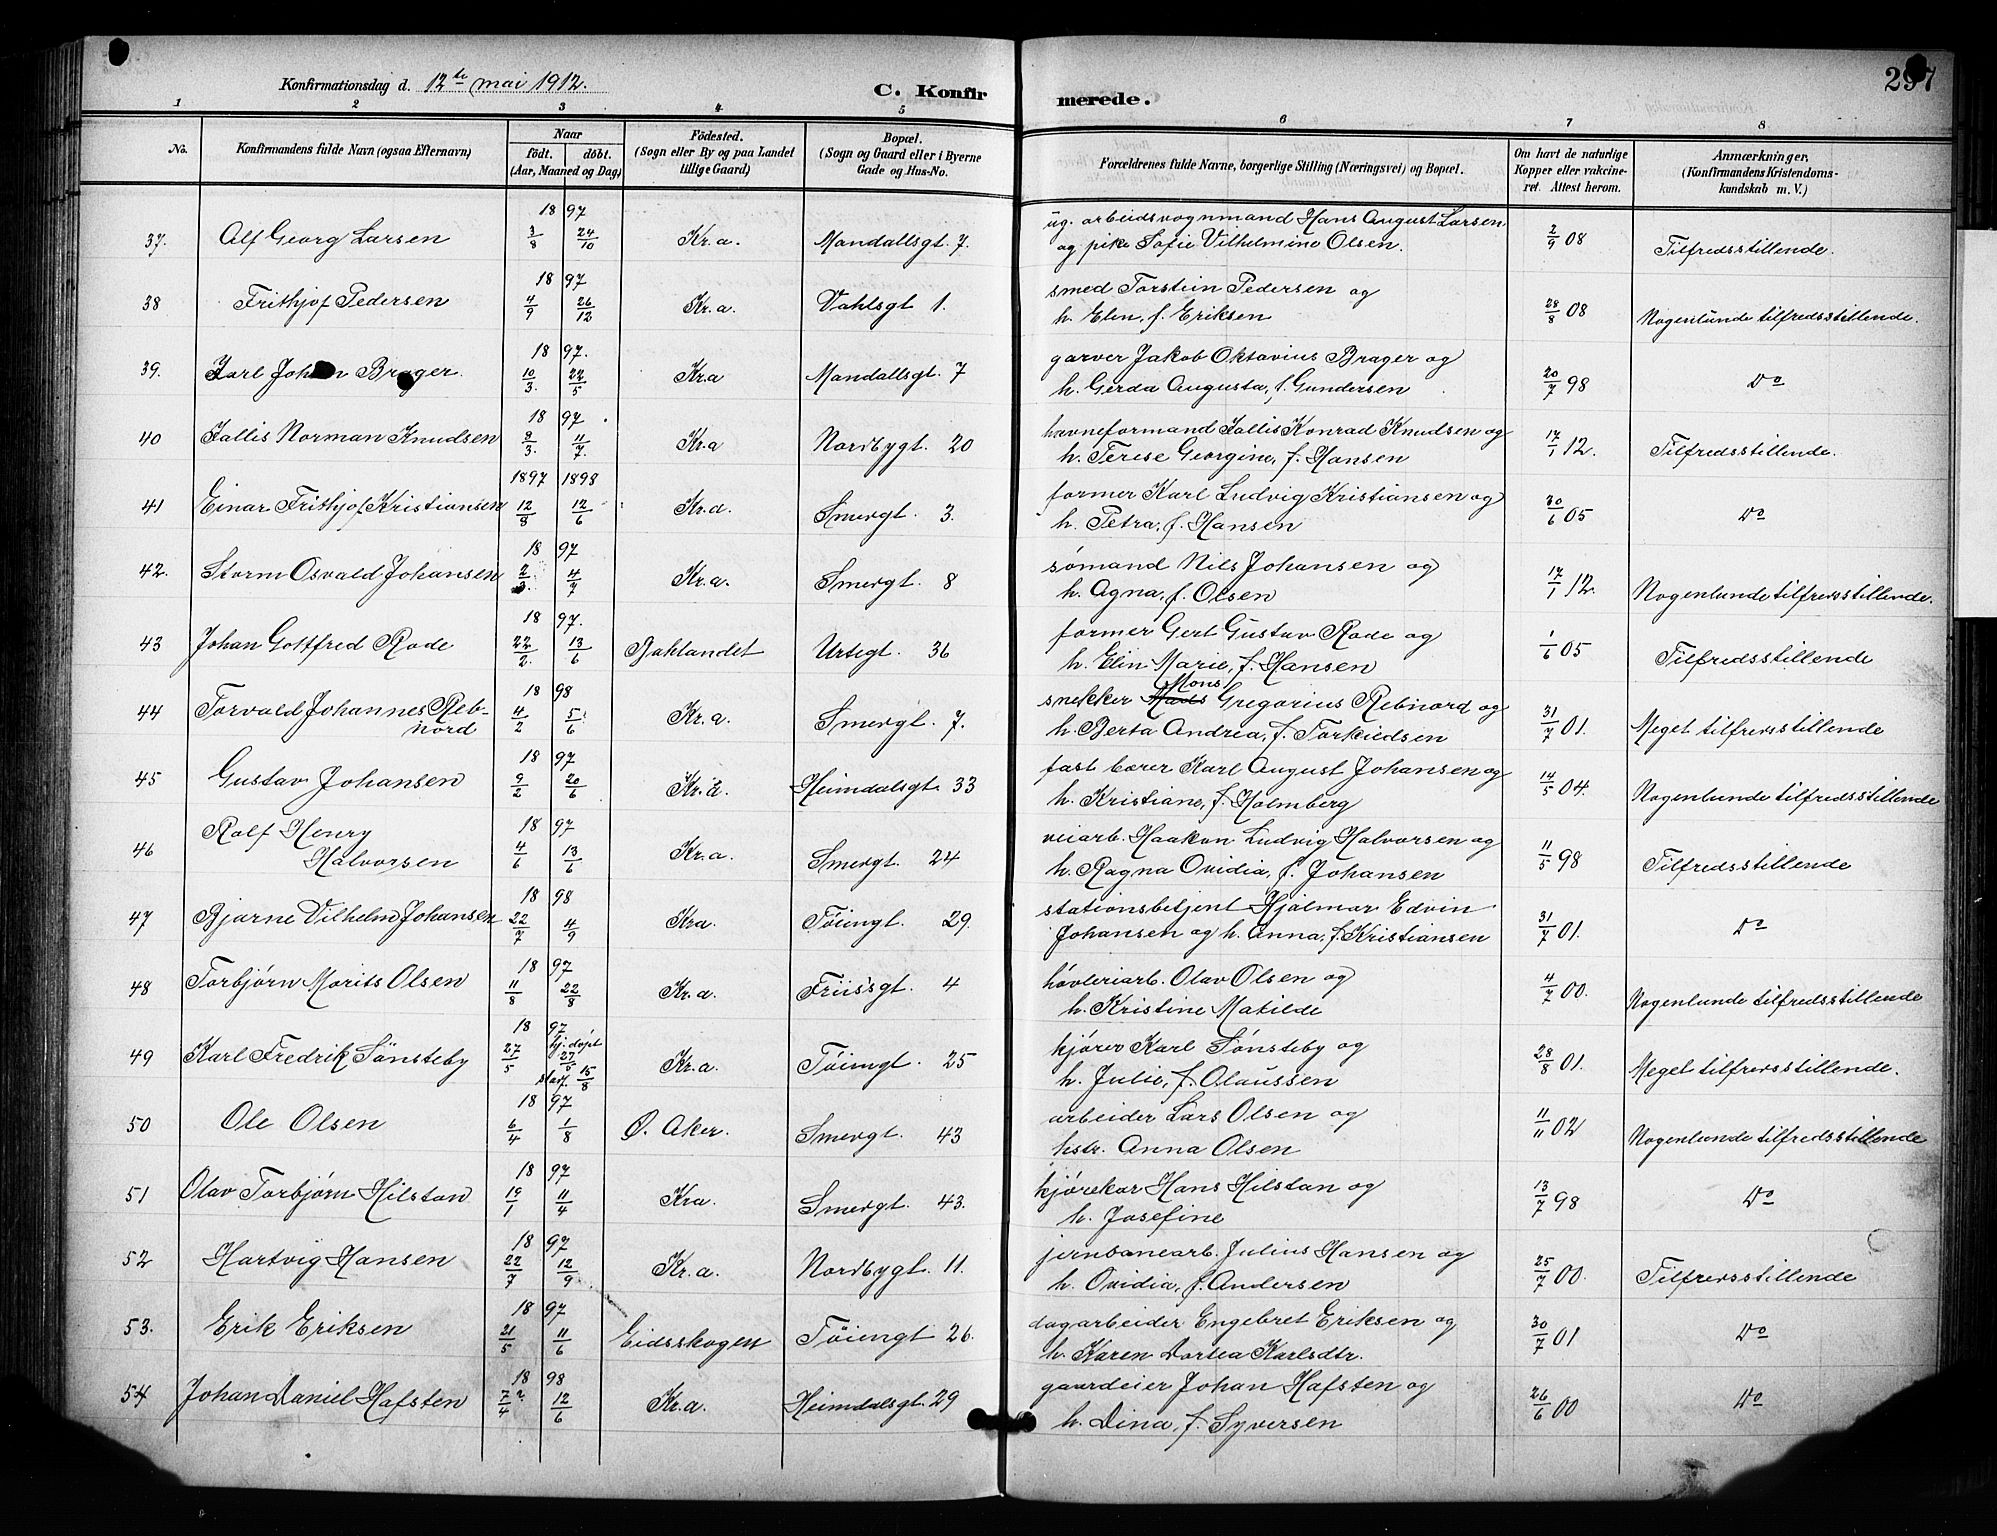 Konfirmationsdag d. 12te mai 1912. C. Konfirmerede. 297
1 2 3 4 5 6 7 8
No. Konfirmandens fulde Navn (ogsaa Efternavn) Naar födt. döbt. (Aar, Maaned og Dag) Födested. (Sogn eller By og paa Landet tillige Gaard) Bopæl. (Sogn og Gaard eller i Byerne Gade og Hus-No. Forældrenes fulde Navne, borgerlige Stilling (Næringsvei) og Bopæl. Om havt de naturlige Kopper eller vakcineret. Attest herom. Anmærkninger. (Konfirmandens Kristendomskundskab m. V.)
18 97 ug. arbeidsvognmand Hans August Larsen
37. Alf Georg Larsen 3/8 24/10 Kr.a. Mandallsgt. 7. og pike Sofie Vilhelmine Olsen. 2/9 08 Tilfredsstillende.
18 97 smed Torstein Pedersen og
38 Frithjof Pedersen 4/9 26/12 Kr.a. Vahlsgt 1. h. Elin, f. Eriksen 28/8 08 Nogenlunde tilfredsstillende.
18 97. garver Jakob Oktavius Brager og
39. Karl Johan Brager. 10/3. 22/5 Kr.a Mandallsgt. 7 h. Gerda Augusta, f. Gundersen 20/7 98 Do
18 97. havneformand Jallis Konrad Knudsen og
40 Jallis Norman Knudsen 8/3. 11/7. Kr.a Nordbygt. 20 h. Terese Georgine, f. Hansen 17/1 12. Tilfredsstillende.
1897 1898 former Karl Ludvig Kristiansen og
41 Einar Frithjof Kristiansen 12/8 12/6 Kr.a. Smergt. 3. h. Petra, f. Hansen 30/6 05 Do
18 97 sømand Nils Johansen og
42. Storm Osvald Johansen 2/3. 4/7 Kr.a. Smergt. 8 h. Agna, f. Olsen 17/1 12. Nogenlunde tilfredsstillende.
18 97. former Gert Gustav Rode og
43 Johan Gottfred Rode 22/2. 13/6 Baklandet Urtegt. 36 h. Elin Marie, f. Hansen 1/6 05 Tilfredsstillende
18 98 snekker Mads Mons Gregorius Rebnord og
44 Torvald Johannes Rebnord 4/2 5/6. Kr.a. Smergt. 7. h. Berta Andrea, f. Torkildsen 31/7 01. Meget tilfredsstillende
18 97 fast bærer Karl August Johansen og
45 Gustav Johansen 9/2 20/6 Kr.a. Heimdalsgt. 33 h. Kristiane, f. Holmberg 14/5 04. Nogenlunde tilfredsstillende
18 97 veiarb. Haakon Ludvig Halvorsen og
46 Rolf Henry Halvorsen 4/6 13/6 Kr.a. Smergt. 24 h. Ragna Ovidia, f. Johansen 11/5 98 Tilfredsstillende
18 98 stationsbetjent Hjalmar Edvin
47 Bjarne Vilhelm Johansen 22/7 4/9 Kr.a. Tøiengt. 29. Johansen og h. Anna, f. Kristiansen 31/7 01. Do
18 97 høvleriarb. Olav Olsen og
48 Torbjørn Morits Olsen 11/8 22/8 Kr.a. Friisgt. 4 h. Kristine Matilde 4/7 00. Nogenlunde tilfredsstillende
18 97 kjører Karl Sønsteby og
49 Karl Fredrik Sønsteby 27/5 hj.døpt 27/5 stad. 15/8 Kr.a. Tøiengt. 25 h. Julie, f. Olaussen 28/8 01. Meget tilfredsstillende.
18 97 arbeider Lars Olsen og
50 Ole Olsen 6/4 1/8 Ø. Aker. Smergt. 43 hstr. Anna Olsen 11/11 02 Nogenlunde tilfredsstillende
18 97 kjørekar Hans Hilstan og
51 Olav Torbjørn Hilstan 19/1 11/4 Kra. Smergt. 43. h. Josefine 13/7 98 Do
18 97 jernbanearb. Julius Hansen og
52 Hartvig Hansen 22/7 12/9 Kr.a. Nordbygt. 11. h. Ovidia, f. Andersen 25/7 00. Tilfredsstillende
18 97 dagarbeider Engebret Eriksen og
53. Erik Eriksen 21/5 11/6 Eidsskogen Tøiengt 26. h. Karen Dortea Karlsdtr. 30/7 01 Do
18 98 gaardeier Johan Hafsten og
54 Johan Daniel Hafsten 7?/4 12/6 Kr.a. Heimdalsgt. 29 h. Dina, f. Syversen 26/6 00 Do